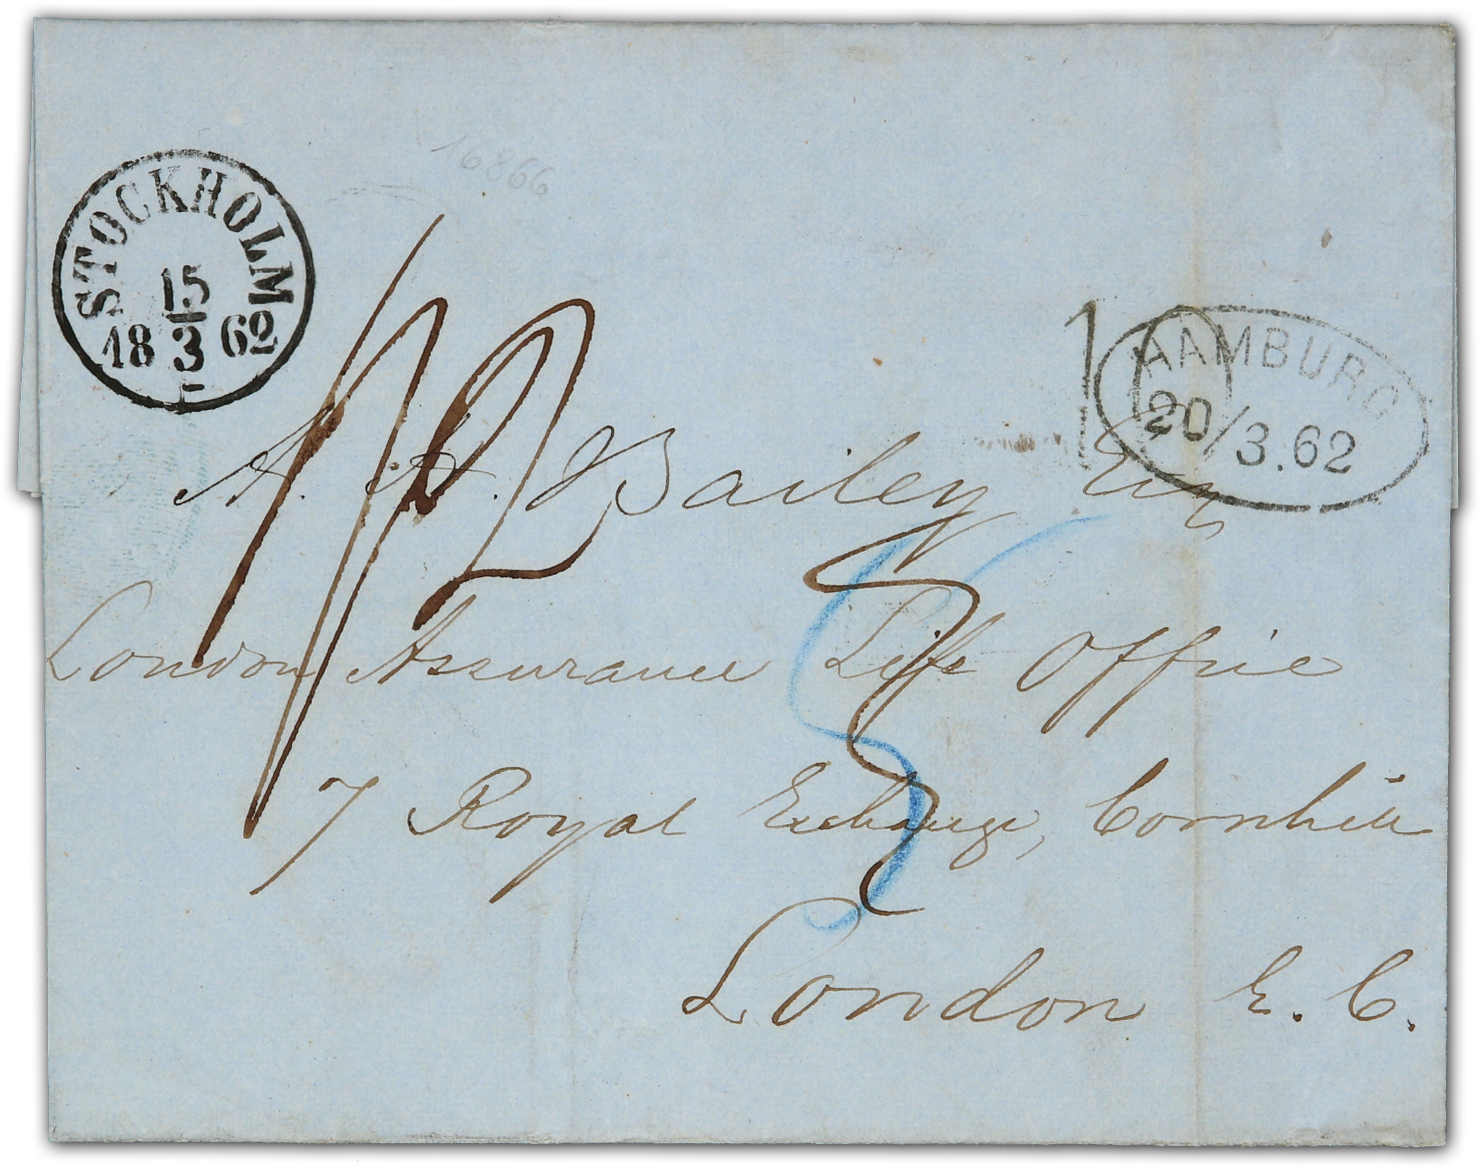 16866
STOCKHOLM
15
18 3 62
10
HAMBURG
20/3.62
1/2
A. H. Bailey Esq
London Assurance Life Office
7 Royal Exchange, Cornhill
London E. C.